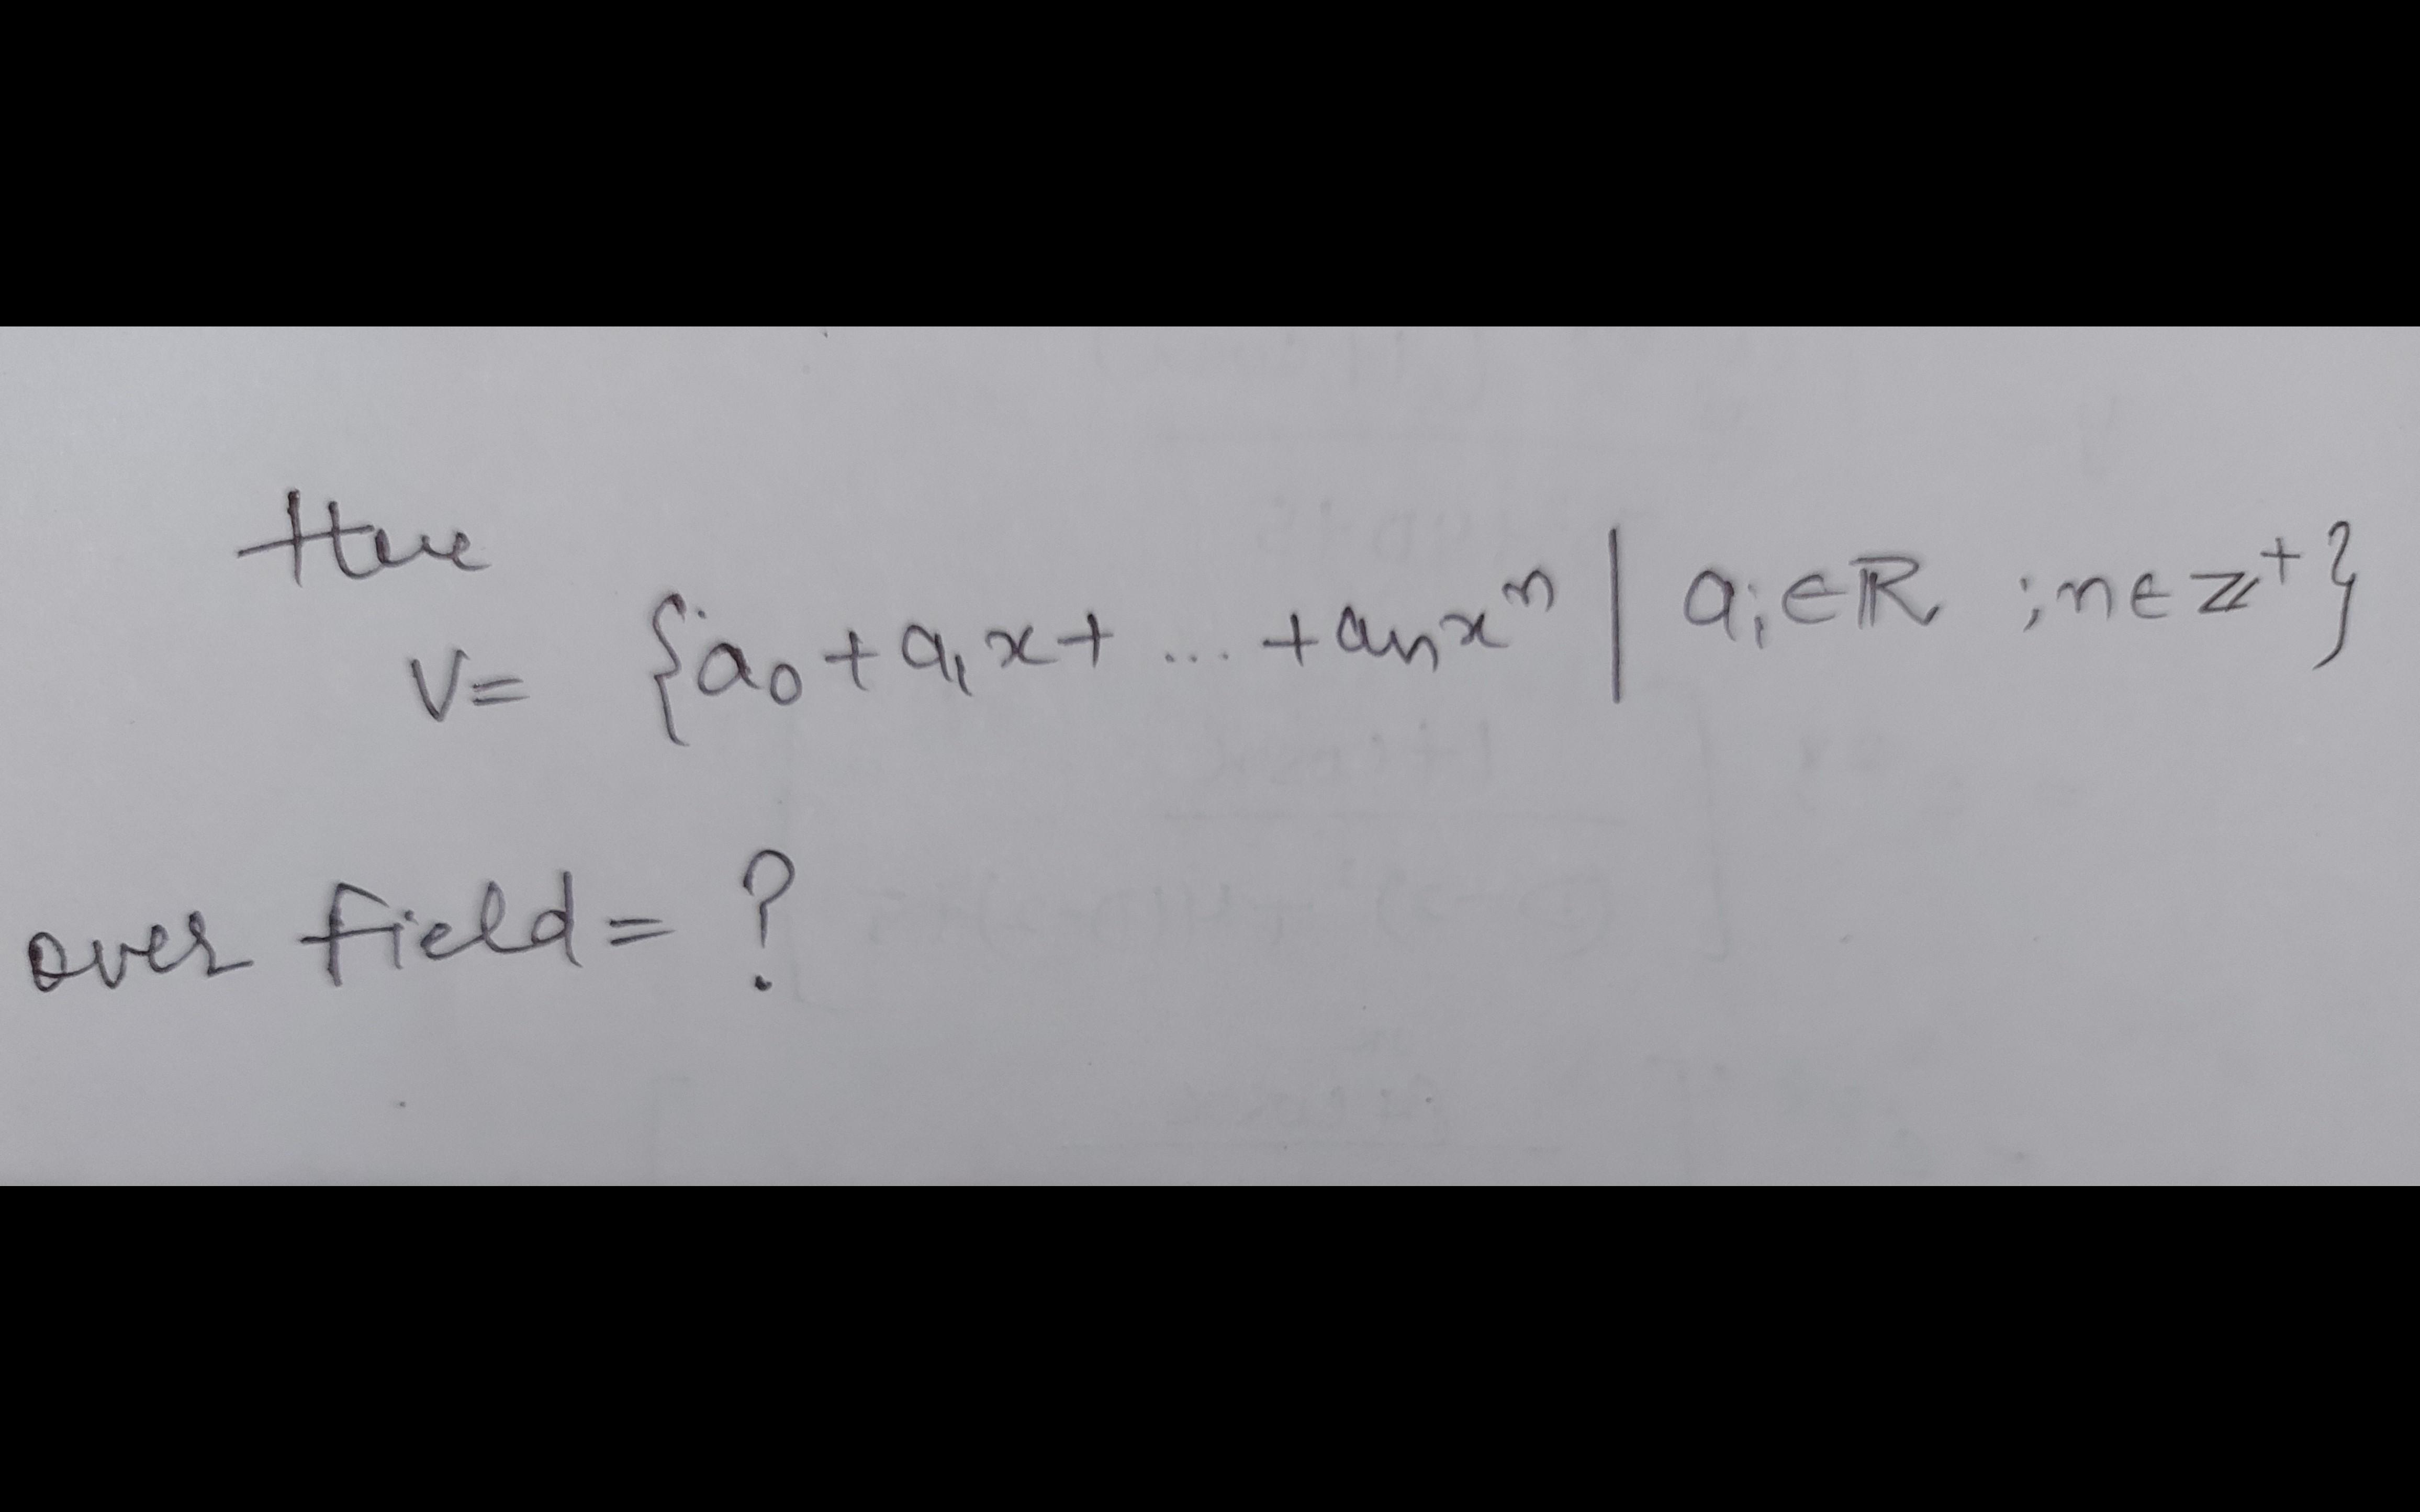 Here
V = {a₀ + a₁x + ... + aₙxⁿ | aᵢ ∈ ℝ ; n ∈ ℤ⁺}
over field = ?